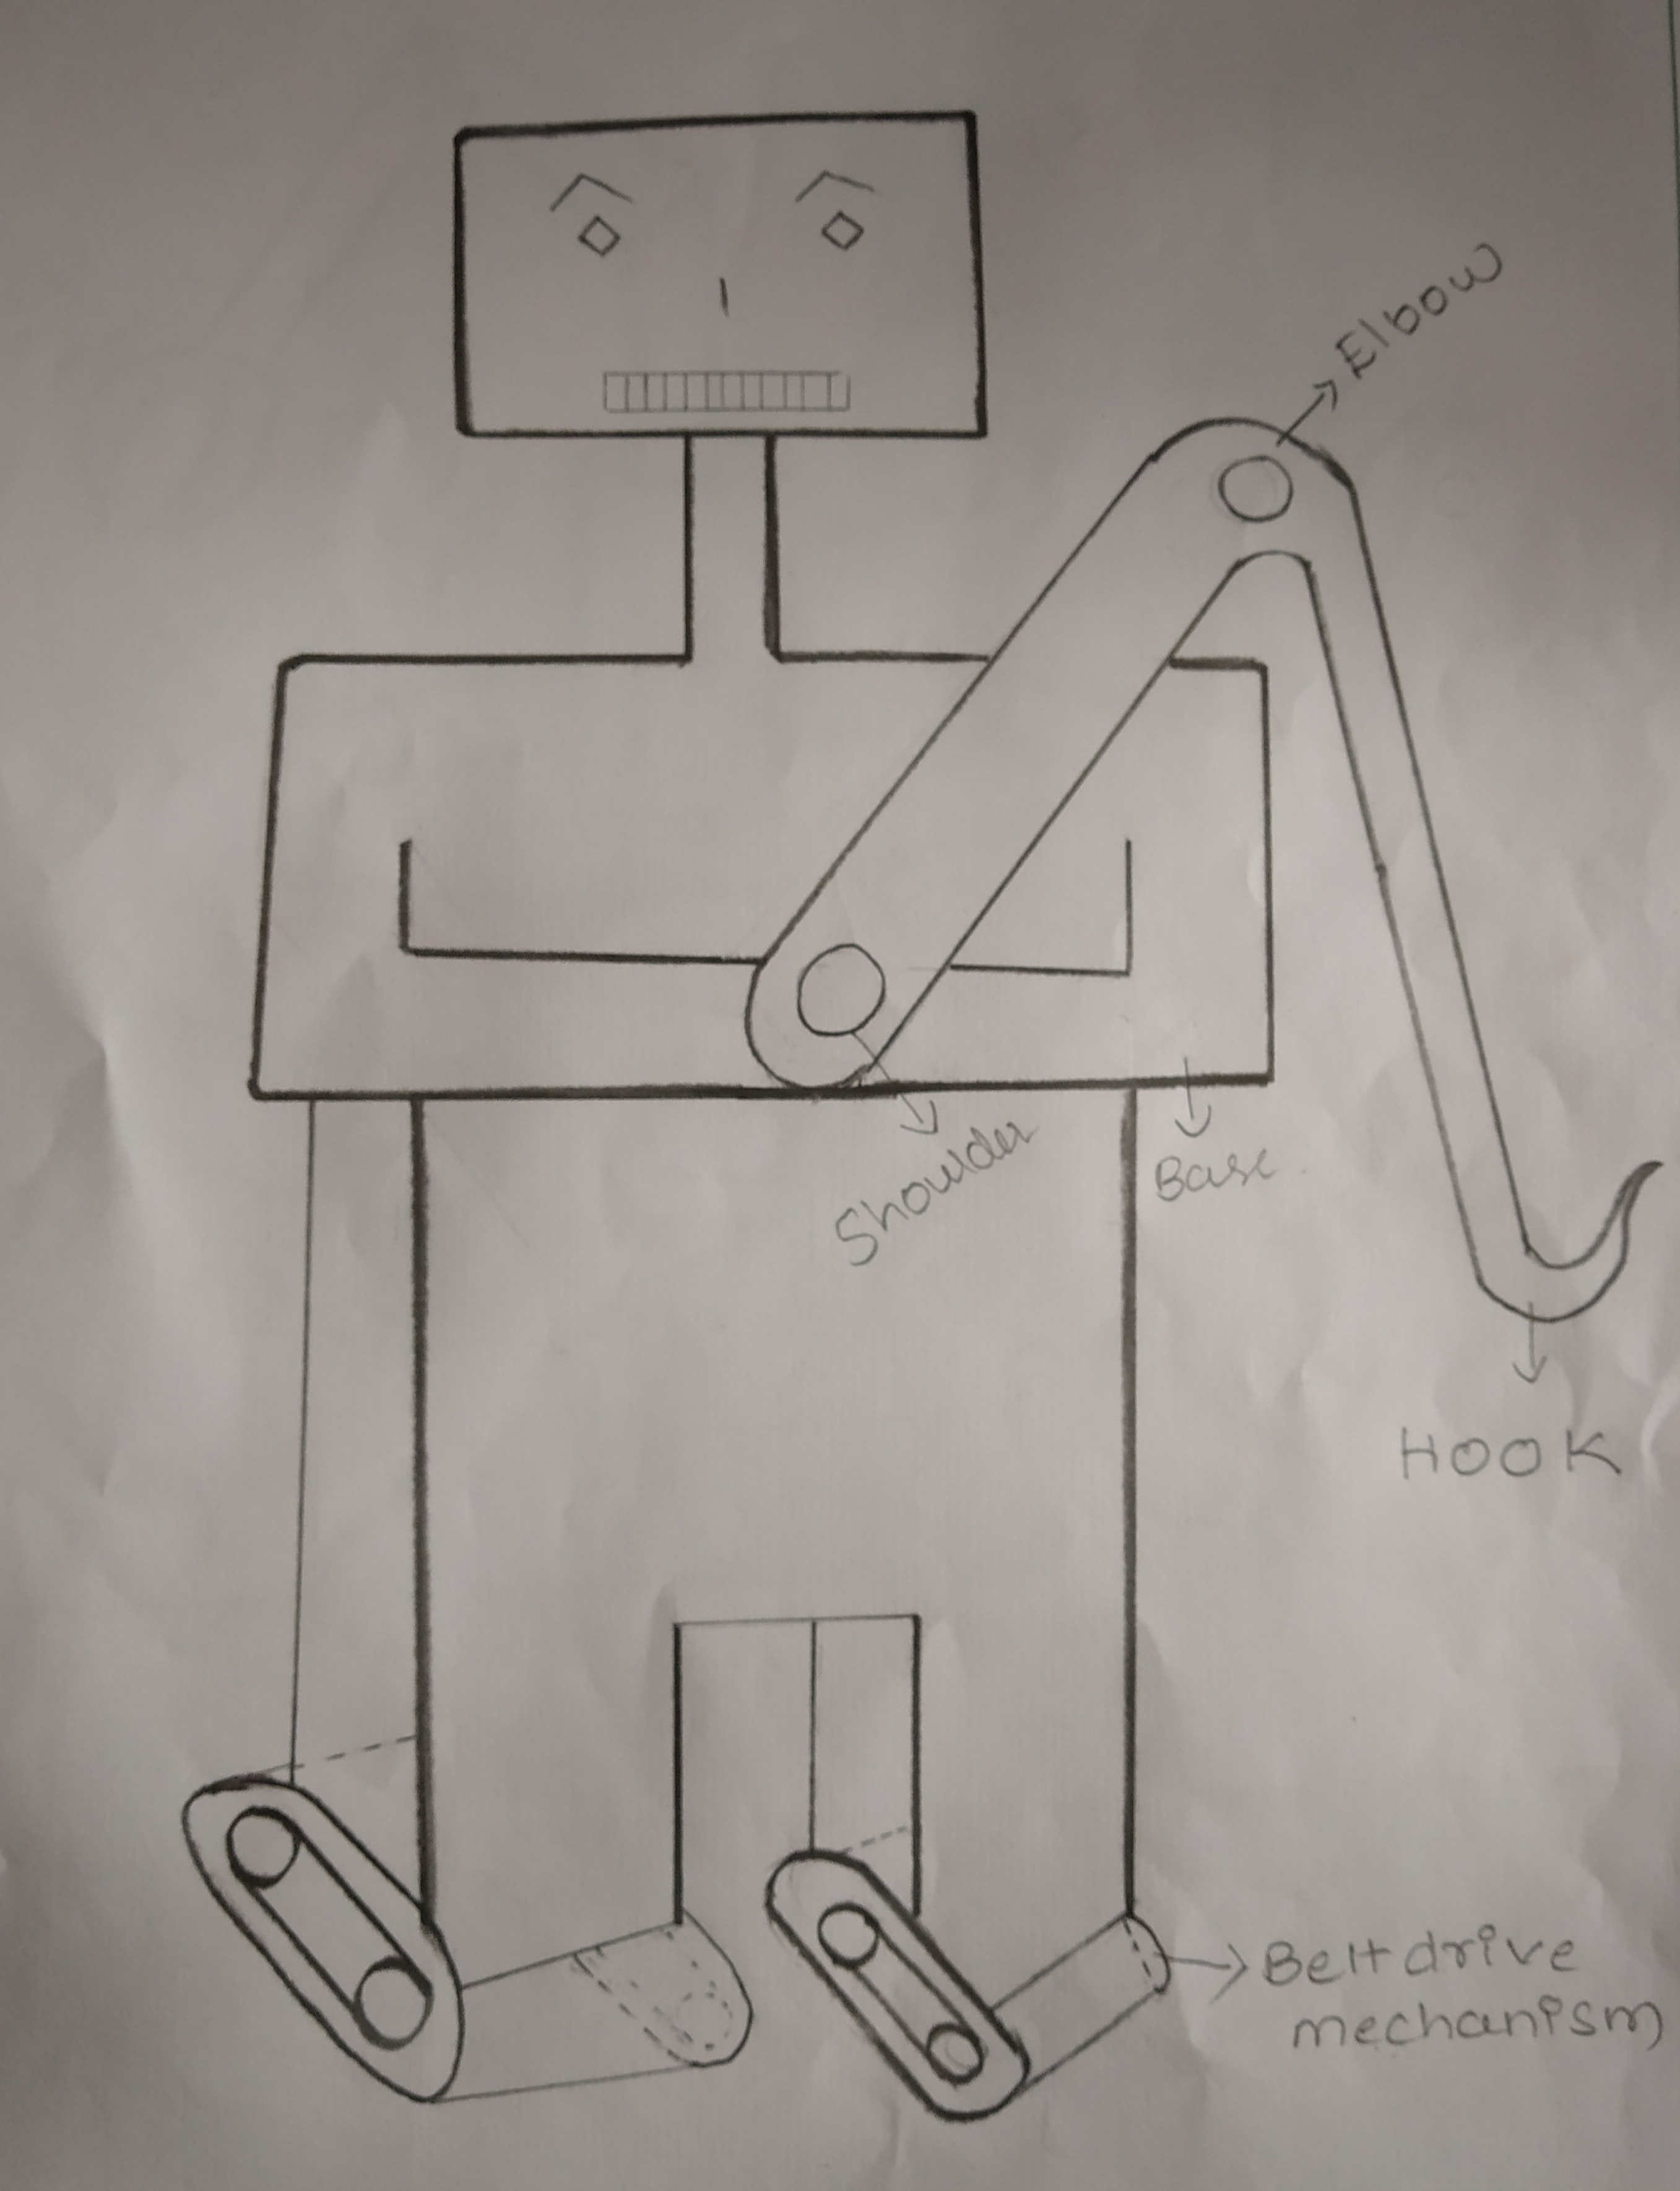 Elbow
Shoulder
Base
HOOK
Belt drive
mechanism